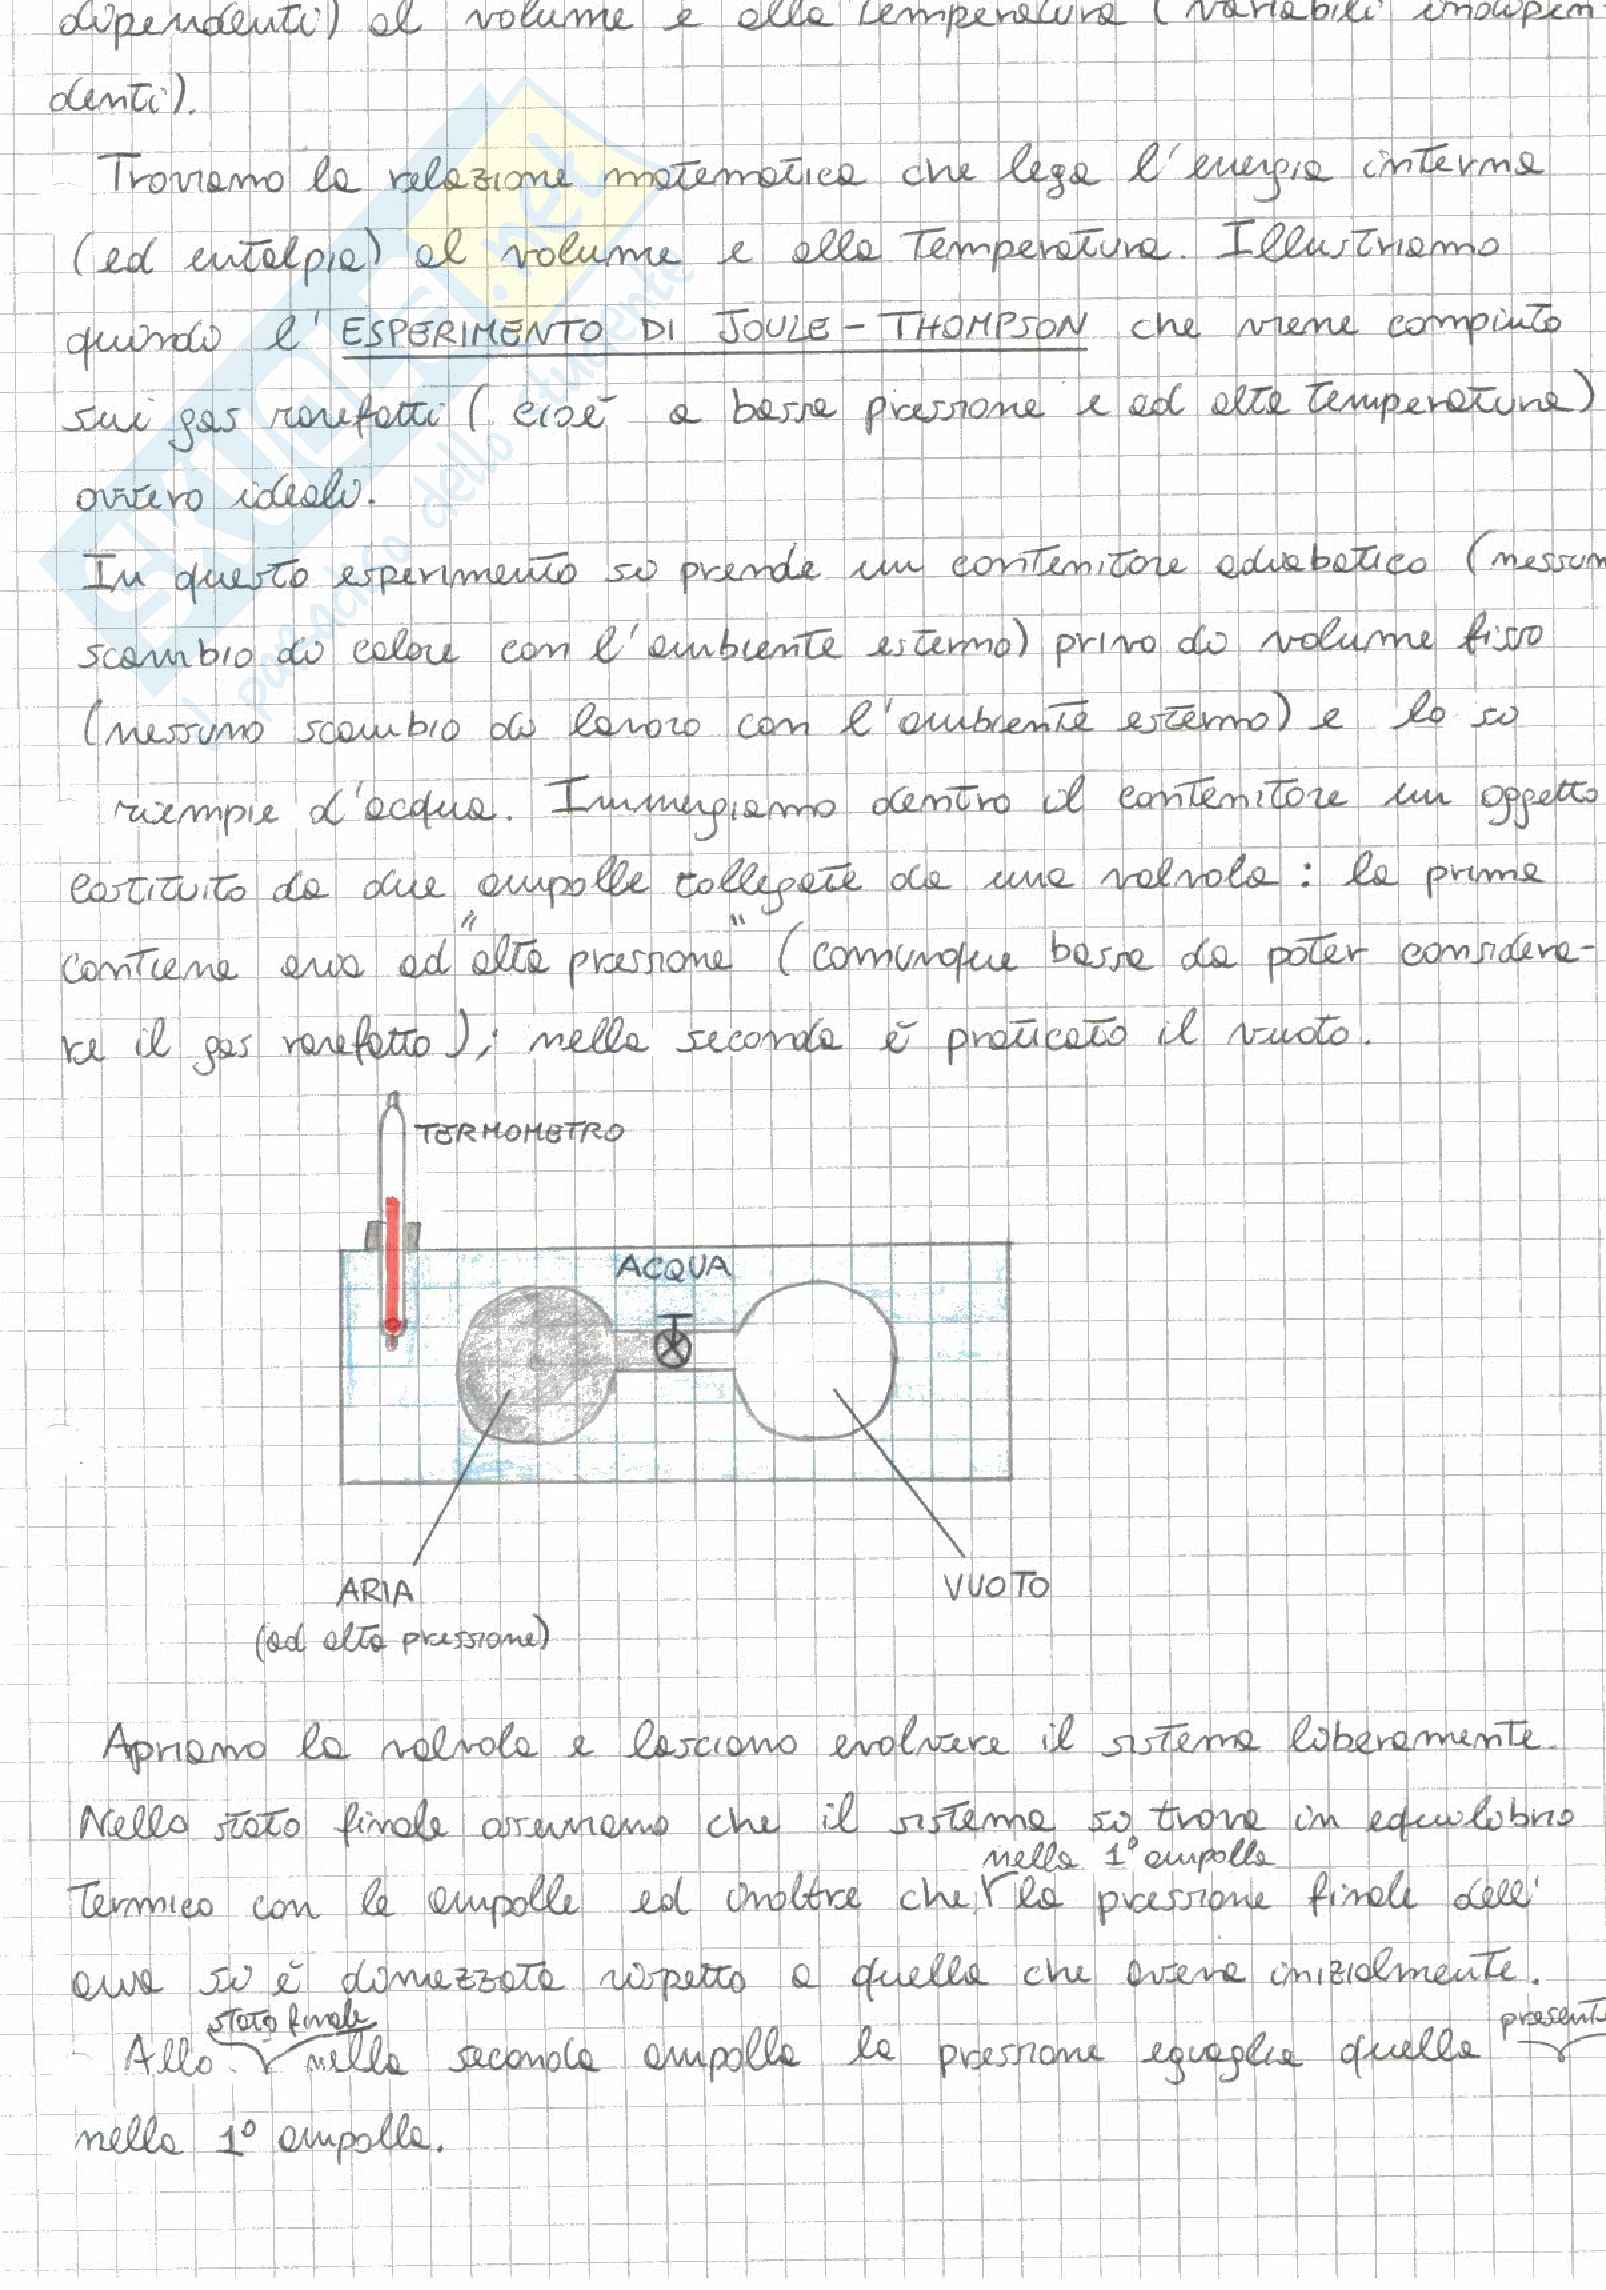 dipendenti) al volume e alla temperatura (variabili indipen-
denti).
Troviamo la relazione matematica che lega l'energia interna
(ed entalpia) al volume e alla temperatura. Illustriamo
quindi l'ESPERIMENTO DI JOULE-THOMPSON che viene compiuto
sui gas rarefatti (cioè a bassa pressione e ad alta temperatura)
ovvero ideali.
In questo esperimento si prende un contenitore adiabatico (nessun
scambio di calore con l'ambiente esterno) privo di volume fisso
(nessuno scambio di lavoro con l'ambiente esterno) e lo si
riempie d'acqua. Immergiamo dentro il contenitore un oggetto
costituito da due ampolle collegate da una valvola: la prima
contiene aria ad "alta pressione" (comunque bassa da poter considera-
re il gas rarefatto); nella seconda è praticato il vuoto.
TERMOMETRO
ACQUA
ARIA
(ad alta pressione)
VUOTO
Apriamo la valvola e lasciano evolvere il sistema liberamente.
Nello stato finale osserviamo che il sistema si trova in equilibrio
nella 1° ampolla
termico con le ampolle ed inoltre che la pressione finale dell'
aria si è dimezzata rispetto a quella che aveva inizialmente.
stato finale
presente
Allo nella seconda ampolla la pressione eguaglia quella
nella 1° ampolla.
SKUOLA.net
il paradiso dello studente